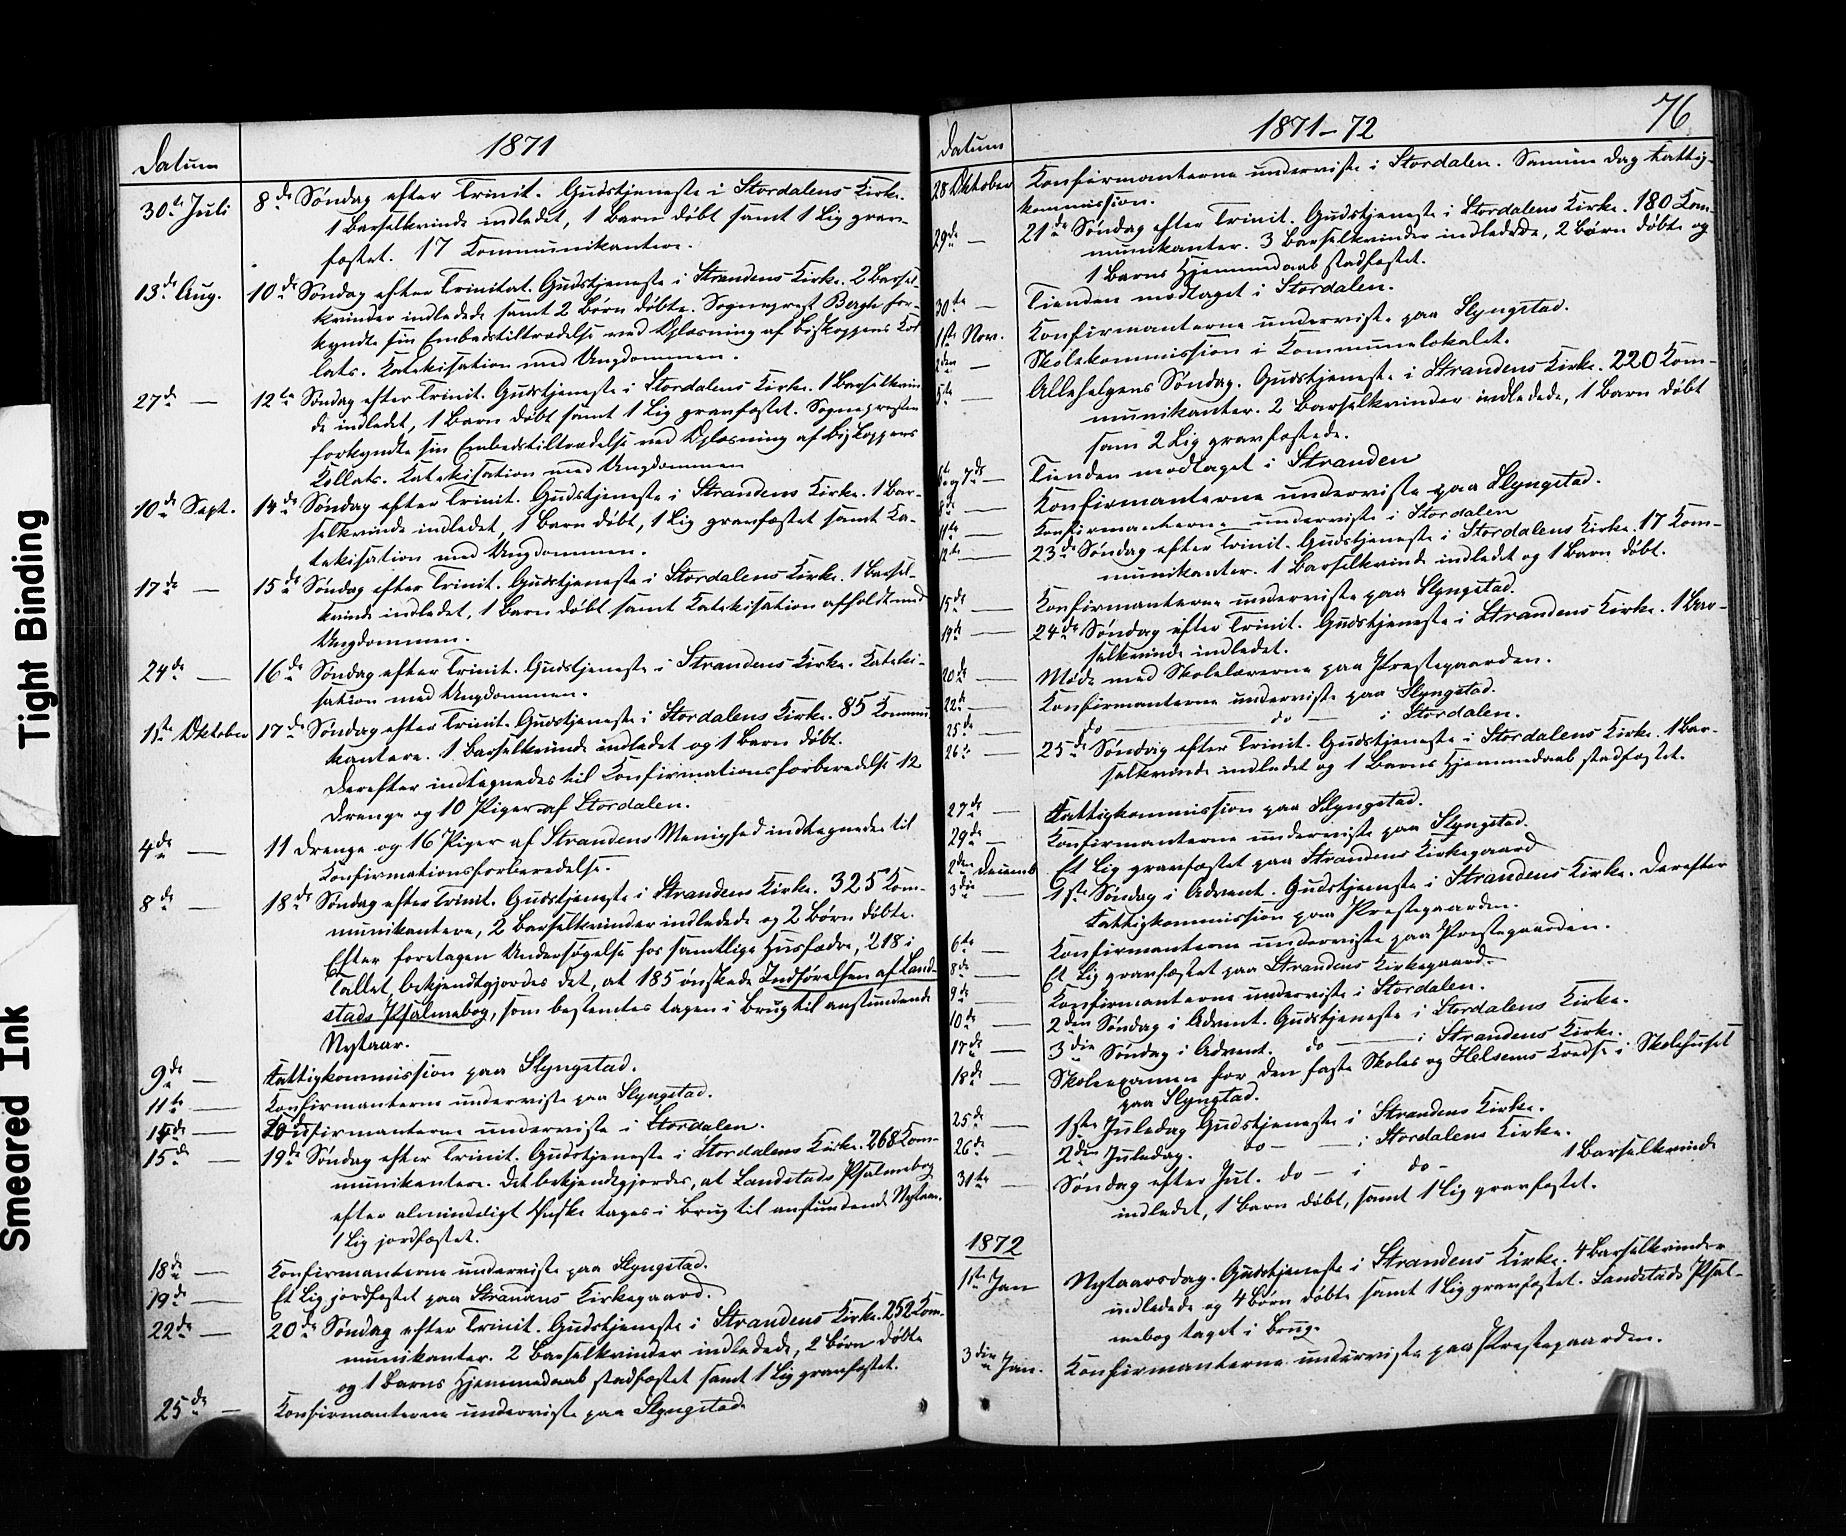 Tight Binding
Smeared Ink
Datum
1871
30te Juli
8de Søndag efter Trinit. Gudstjeneste i Stordalens Kirke.
1 Barselkvinde indledet, 1 Barn døbt samt 1 Lig grav-
fæstet. 17 Kommunikantere.
13de Aug.
10de Søndag efter Trinitat. Gudstjeneste i Strandens Kirke. 2 Barsel-
kvinder indledede samt 2 Børn døbte. Sogneprest Berghe for-
kyndte sin Embedstiltrædelse ved Oplæsning af Biskoppens Kol
lats. Katekisation med Ungdommen.
27de —
12te Søndag efter Trinit. Gudstjeneste i Stordalens Kirke. 1 Barselkvin
de indledet, 1 Barn døbt samt 1 Lig gravfæstet. Sognepresten
forkyndte sin Embedstiltrædelse ved Oplæsning af Biskoppens
Kollats. Katekisation med Ungdommen
10de Sept.
14de Søndag efter Trinit. Gudstjeneste i Strandens Kirke. 1 Bar-
selkvinde indledet, 1 Barn døbt, 1 Lig gravfæstet samt Ka-
tekisation med Ungdommen.
17de —
15de Søndag efter Trinit. Gudstjeneste i Stordalens Kirke. 1 Barsel-
kvinde indledet, 1 Barn døbt samt Katekisation afholdt med
Ungdommen.
24de —
16de Søndag efter Trinit. Gudstjeneste i Strandens Kirke. Kateki-
sation med Ungdommen.
1ste Oktober
17de Søndag efter Trinit. Gudstjeneste i Stordalens Kirke. 85 Kommu
kantere. 1 Barselkvinde indledet og 1 Barn døbt.
Derefter indtegnedes til Konfirmationsforberedelse 12
Drenge og 10 Piger af Stordalen.
4de —
11 Drenge og 16 Piger af Strandens Menighed indtegnedes til
Konfirmationsforberedelse.
8de —
18de Søndag efter Trinit. Gudstjeneste i Strandens Kirke. 325 Kom-
munikantere, 2 Barselkvinder indledede og 2 Børn døbte.
Efter foretagen Undersøgelse hos samtlige Husfædre, 218 i
Tallet, bekjendtgjordes det, at 185 ønskede Indførelsen af Land-
stads Psalmebog, som bestemtes tagen i Brug til anstundende
Nytaar.
9de —
Fattigkommission paa Slyngstad.
11te —
Konfirmanterne underviste paa Slyngstad.
14de —
Konfirmanterne underviste i Stordalen.
15de —
19de Søndag efter Trinit. Gudstjeneste i Stordalens Kirke. 268 Kom-
munikantere. Det bekjendtgjordes, at Landstads Psalmebog
efter almindeligt Ønske tages i Brug til anstundende Nytaar.
1 Lig jordfæstet.
18de —
Konfirmanterne underviste paa Slyngstad.
19de —
Et Lig jordfæstet paa Strandens Kirkegaard.
22de —
20de Søndag efter Trinit. Gudstjeneste i Strandens Kirke. 252 Kom-
munikanter. 2 Barselkvinder indledede, 2 Børn døbte
og 1 Barns Hjemmedaab stadfæstet samt 1 Lig gravfæstet.
25de —
Konfirmanterne underviste paa Slyngstad
Datum
1871–72
76
28 Oktober
Konfirmanterne underviste i Stordalen. Samme Dag Fattig-
kommission.
29de —
21de Søndag efter Trinit. Gudstjeneste i Stordalens Kirke. 180 Kom-
munikanter. 3 Barselkvinder indledede, 2 Børn døbte og
1 Barns Hjemmedaab stadfæstet.
30te —
Tienden modtaget i Stordalen.
1ste Nov.
Konfirmanterne underviste paa Slyngstad.
2den —
Skolekommission i Kommunelokalet.
5te —
Allehelgens Søndag. Gudstjeneste i Strandens Kirke. 220 Kom-
munikanter. 2 Barselkvinder indledede, 1 Barn døbt
sam 2 Lig gravfæstede.
6te og 7de —
Tienden modtaget i Stranden
8de —
Konfirmanterne underviste paa Slyngstad.
11te —
Konfirmanterne underviste i Stordalen
12te —
23de Søndag efter Trinit. Gudstjeneste i Stordalens Kirke. 17 Kom-
munikanter. 1 Barselkvinde indledet og 1 Barn døbt.
15de —
Konfirmanterne underviste paa Slyngstad.
19de —
24de Søndag efter Trinit. Gudstjeneste i Strandens Kirke. 1 Bar-
selkvinde indledet.
20de —
Møde med Skolelærerne paa Prestegaarden.
22de —
Konfirmanterne underviste paa Slyngstad.
25de —
do — do — i Stordalen.
26te —
25de Søndag efter Trinit. Gudstjeneste i Stordalens Kirke. 1 Bar-
selkvinde indledet og 1 Barns Hjemmedaab stadfæstet.
27de —
Fattigkommission paa Slyngstad.
29de —
Konfirmanterne underviste paa Slyngstad.
2den Decemb
Et Lig gravfæstet paa Strandens Kirkegaard
3die —
1ste Søndag i Advent. Gudstjeneste i Strandens Kirke. Derefter
Fattigkommission paa Prestegaarden.
6te —
Konfirmanterne underviste paa Prestegaarden.
8de —
Et Lig gravfæstet paa Strandens Kirkegaard.
9de —
Konfirmanterne underviste i Stordalen.
10de —
2den Søndag i Advent. Gudstjeneste i Stordalens Kirke.
17de —
3die Søndag i Advent. do — i Strandens Kirke.
18de —
Skoleexamen for den faste Skoles og Helsems Kredse i Skolehuset
paa Slyngstad.
25de —
1ste Juledag Gudstjeneste i Strandens Kirke.
26de —
2den Juledag. do — i Stordalens Kirke.
31te —
Søndag efter Jul. do — i do - 1 Barselkvinde
indledet, 1 Barn døbt, samt 1 Lig gravfæstet.
1872
1ste Jan
Nytaarsdag. Gudstjeneste i Strandens Kirke. 4 Barselkvinder
indledede og 4 Børn døbte samt 1 Lig gravfæstet. Landstads Psal-
mebog taget i Brug.
3die Jan.
Konfirmanterne underviste paa Prestegaarden.